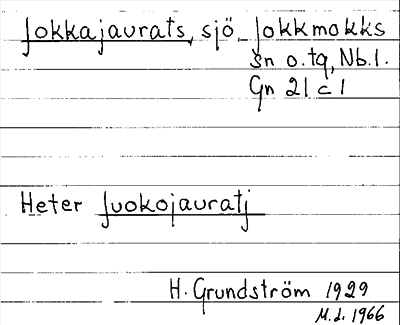 Jokkajaurats, sjö, Jokkmokks
sn o. tg, Nb. l.
Gn 21 c 1
Heter Juokojauratj
H. Grundström 1929
M.d. 1966